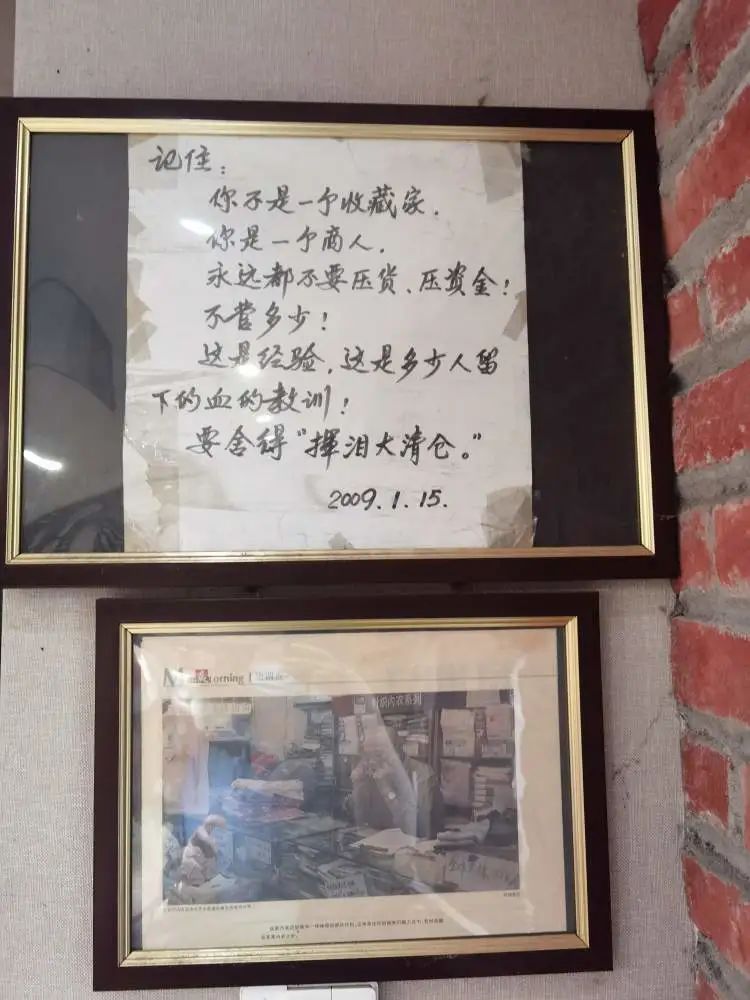 记住：
你不是一个收藏家．
你是一个商人．
永远都不要压货、压资金！
不管多少！
这是经验，这是多少人留
下的血的教训！
要舍得“挥泪大清仓。”
2009.1.15.
orning
内衣系列